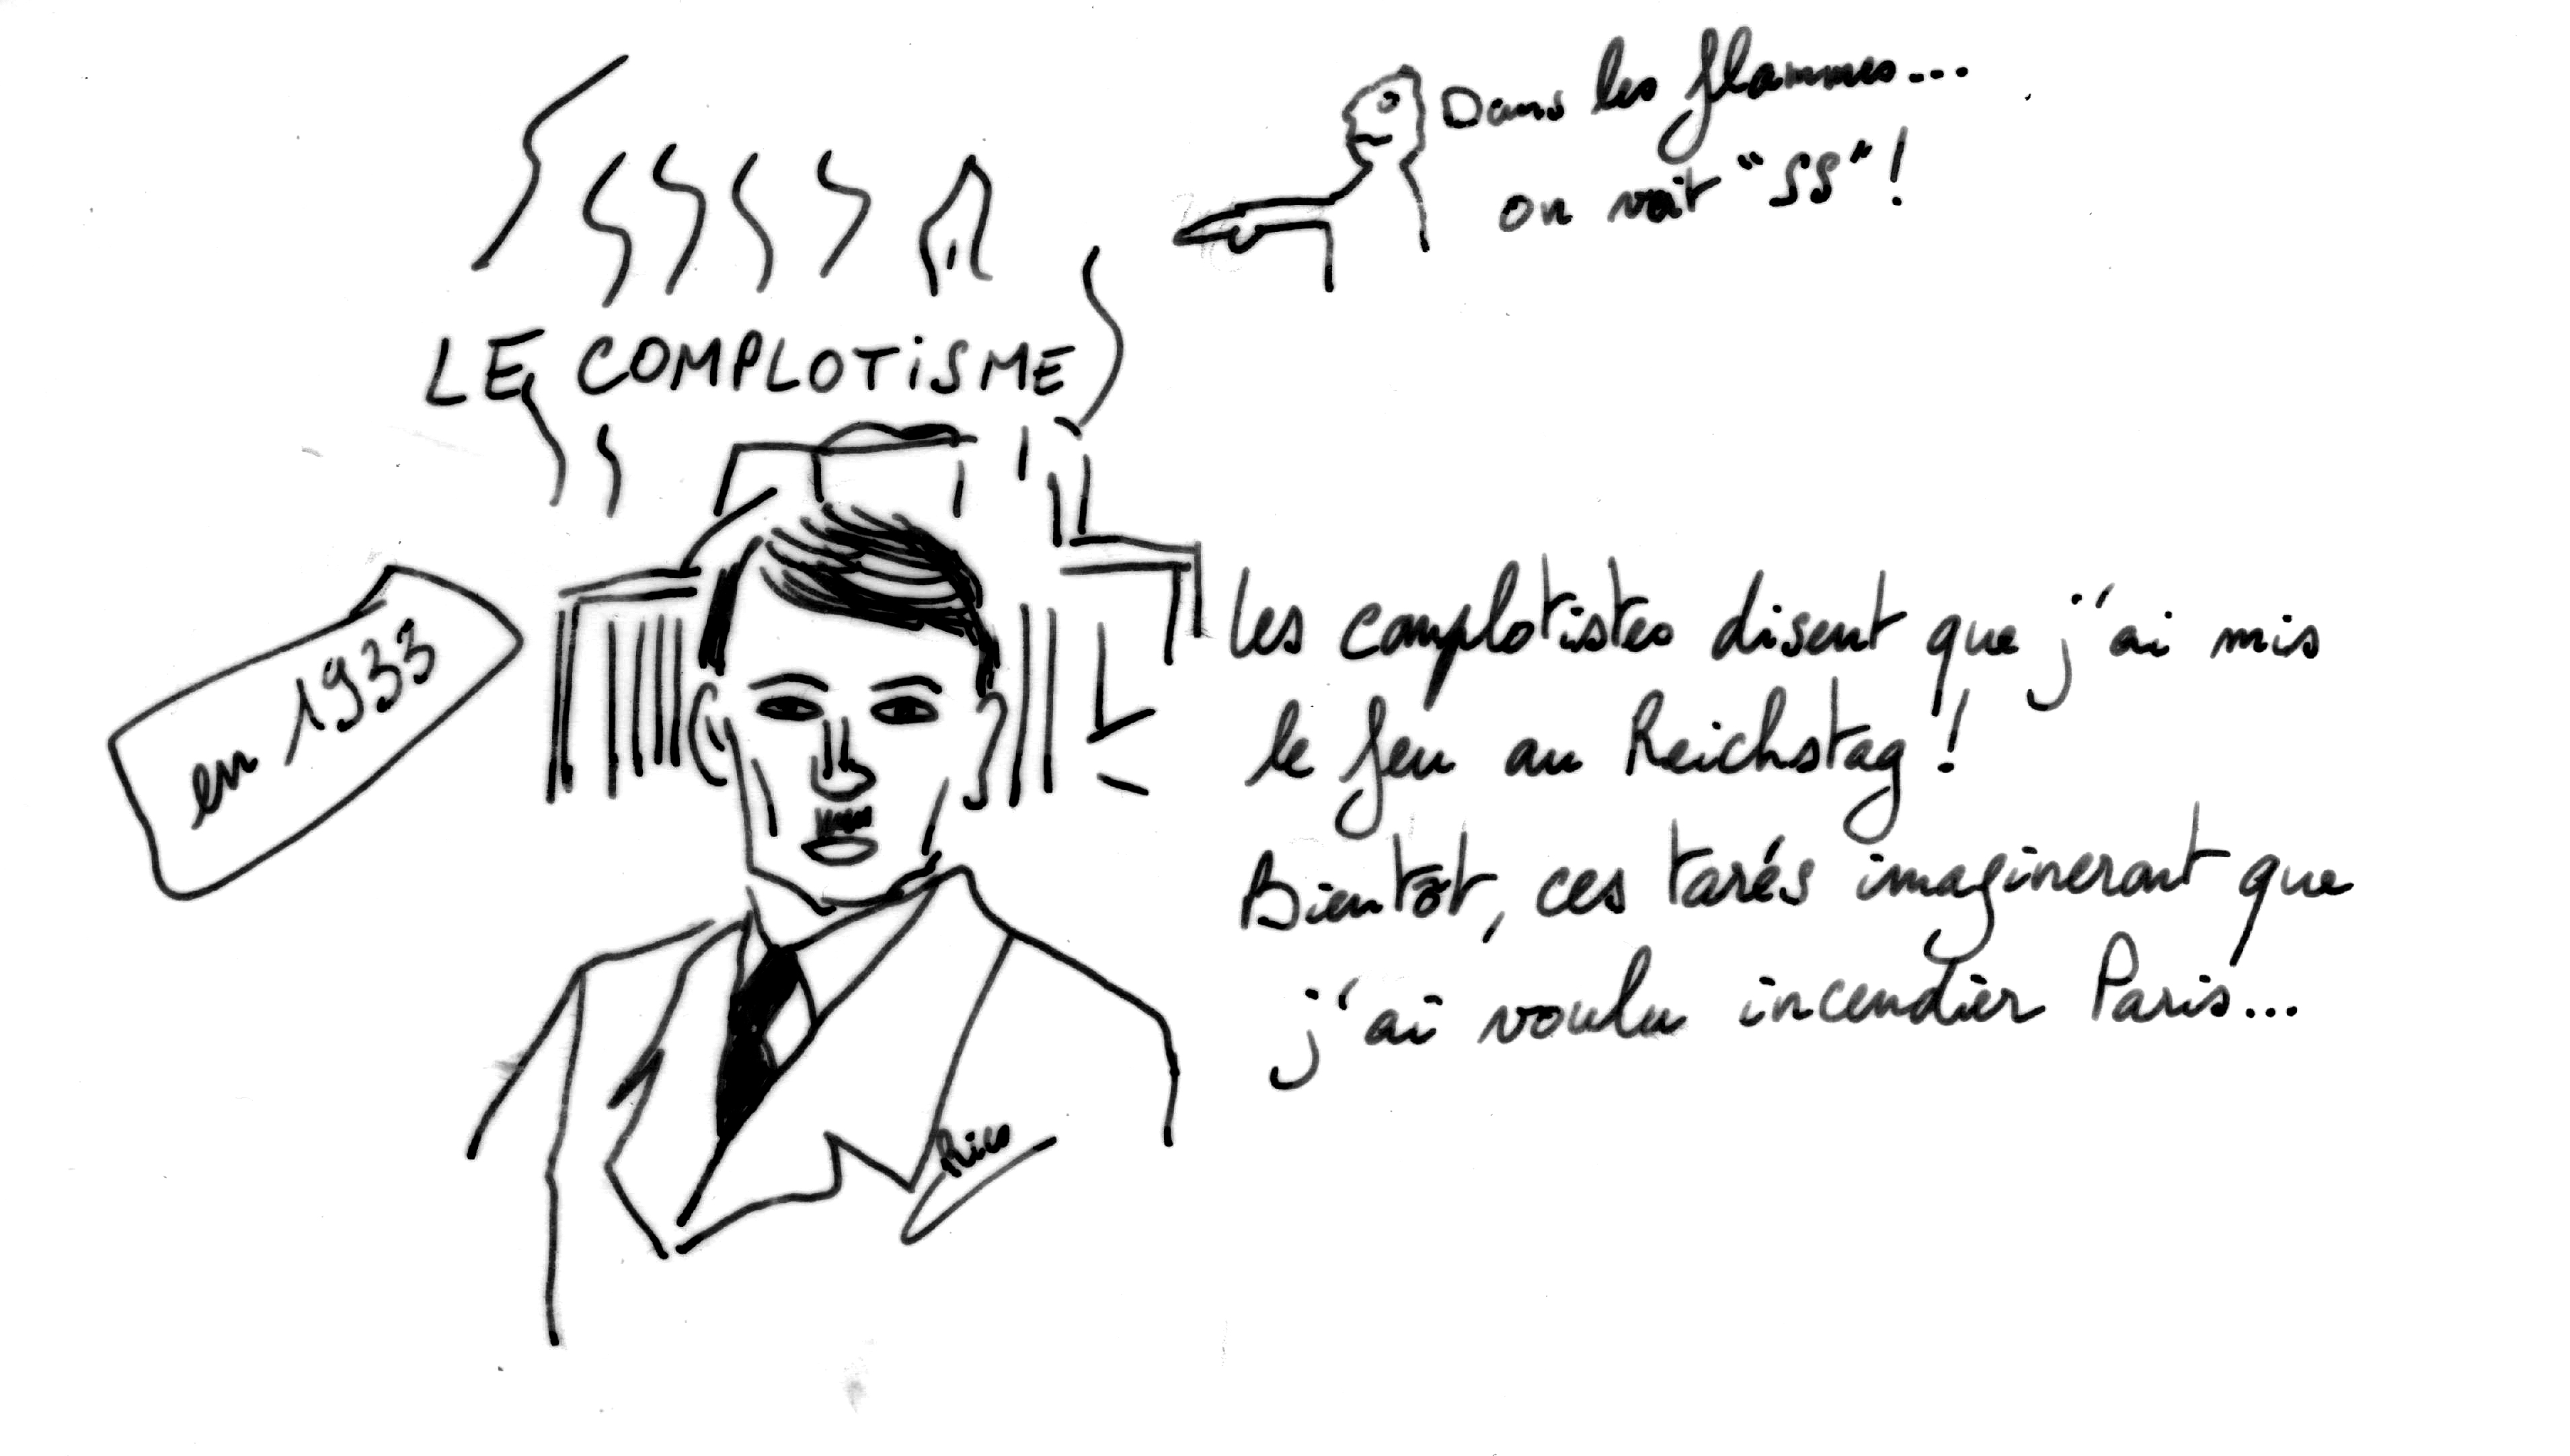 Dans les flammes...
on voit "SS" !
LE COMPLOTiSME
en 1933
Les complotistes disent que j'ai mis
le feu au Reichstag !
Bientôt, ces tarés imagineront que
j'ai voulu incendier Paris...
Rico